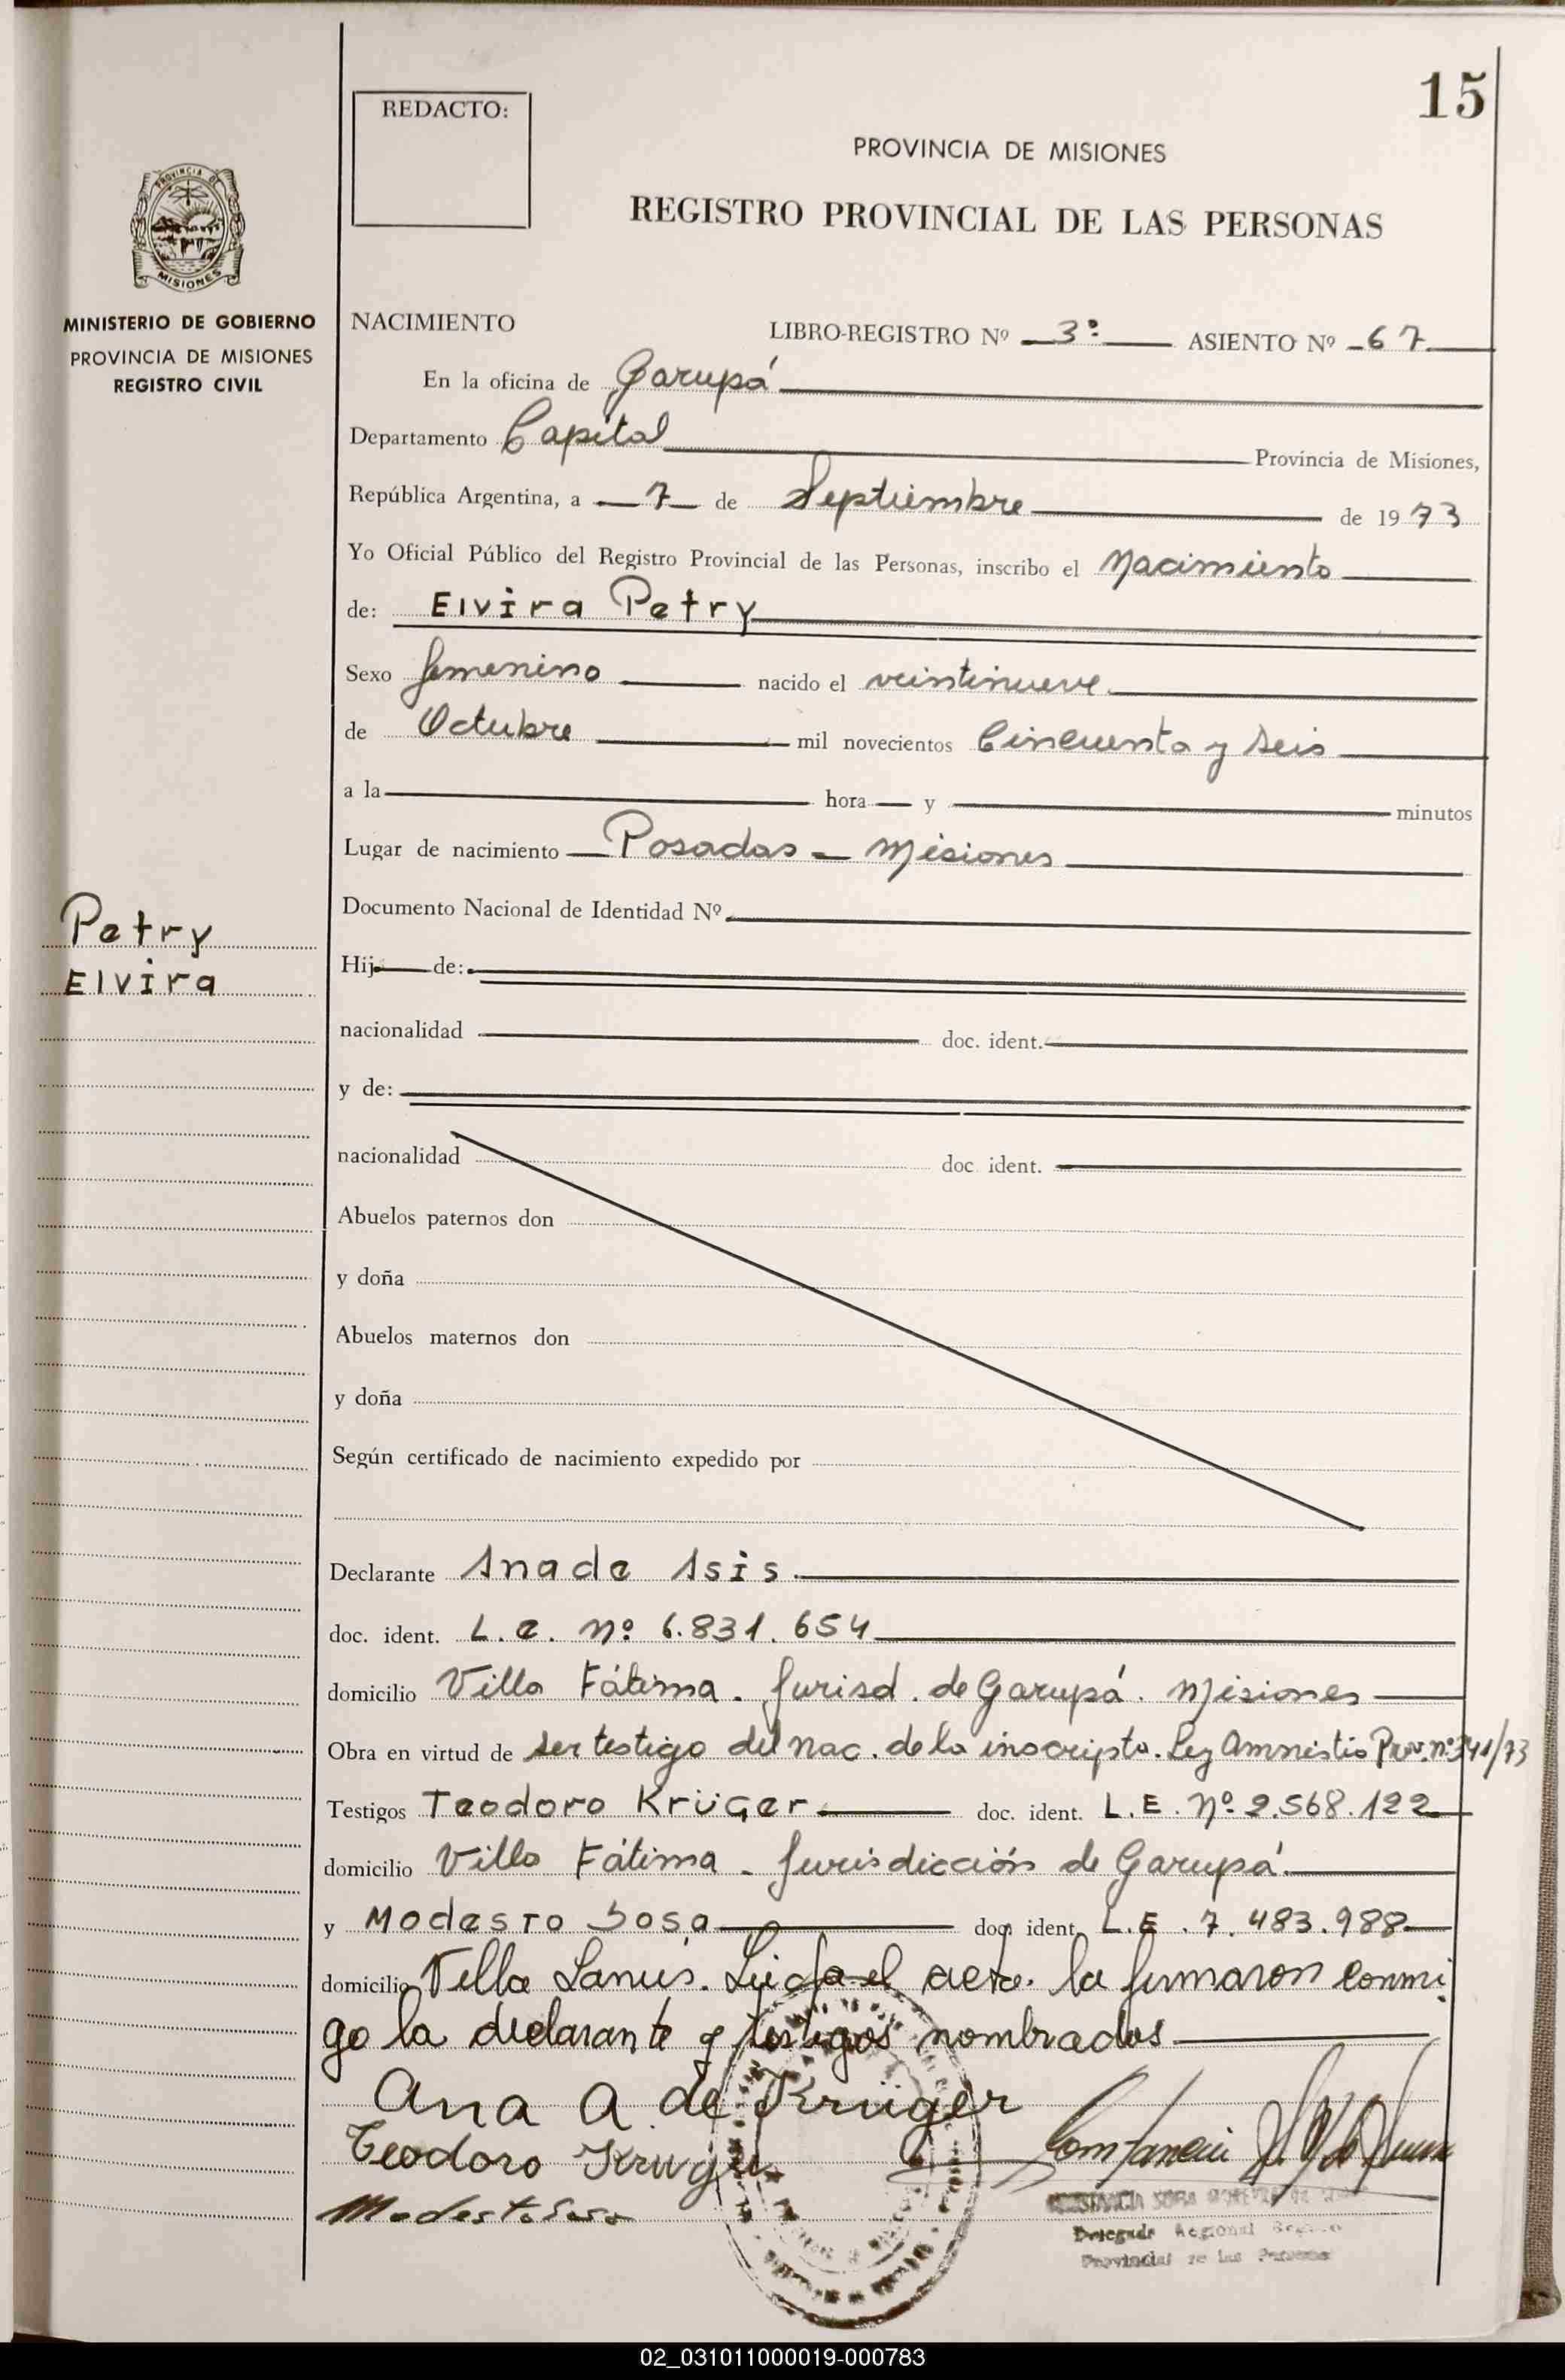 15
REDACTO:
PROVINCIA DE MISIONES
REGISTRO PROVINCIAL DE LAS PERSONAS
PROVINCIA DE
MISIONES
MINISTERIO DE GOBIERNO
PROVINCIA DE MISIONES
REGISTRO CIVIL
NACIMIENTO LIBRO-REGISTRO Nº 3º ASIENTO Nº 67
En la oficina de Garupá
Departamento Capital Provincia de Misiones,
República Argentina, a 7 de Septiembre de 1973
Yo Oficial Público del Registro Provincial de las Personas, inscribo el Nacimiento
de: Elvira Petry
Sexo femenino nacido el veintinueve
de Octubre mil novecientos Cincuenta y seis
a la hora y minutos
Lugar de nacimiento Posadas - Misiones
Documento Nacional de Identidad Nº
Petry
Elvira
Hij de:
nacionalidad doc. ident.
y de:
nacionalidad doc. ident.
Abuelos paternos don
y doña
Abuelos maternos don
y doña
Según certificado de nacimiento expedido por
Declarante Ana de Asis
doc. ident. L.C. Nº 6.831.654
domicilio Villa Fátima. Jurisd. de Garupá. Misiones
Obra en virtud de ser testigo del nac. de la inscripta. Ley Amnistia Prov. nº 341/73
Testigos Teodoro Krüger doc. ident. L.E. Nº 2.568.122
domicilio Villa Fátima - Jurisdicción de Garupá
y Modesto Sosa doc. ident. L.E. 7.483.988
domicilio Villa Lanús. Leida el acta. la firmaron conmi
go la declarante y testigos nombrados
Ana A de Krüger
Teodoro Kruger
Modesto Sosa
Delegada Regional
Provincial de las Personas
02_031011000019-000783